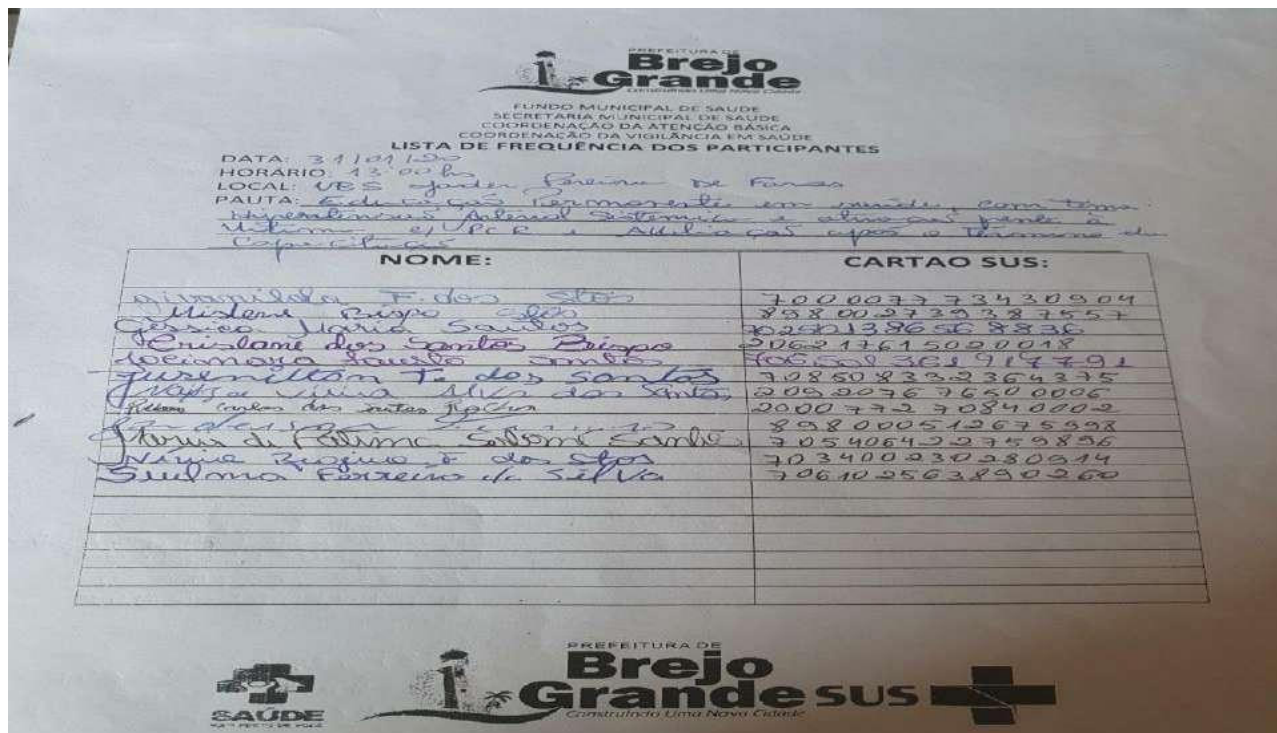 PREFEITURA DE
Brejo
Grande
Construindo Uma Nova Cidade
FUNDO MUNICIPAL DE SAUDE
SECRETARIA MUNICIPAL DE SAUDE
COORDENAÇÃO DA ATENÇÃO BÁSICA
COORDENAÇÃO DA VIGILÂNCIA EM SAÚDE
LISTA DE FREQUÊNCIA DOS PARTICIPANTES
DATA: 31/01/20
HORÁRIO: 13:00 hs
LOCAL: UBS Pereira De
PAUTA: Educação Permanente em saúde, com tema
Hipertensão Arterial Sistemica e frente à
Vitima c/ PCR e após o Término da
Capacitação
NOME: CARTAO SUS:
Givanilda F. dos Stos 700007773430904
Bispo 898002739387557
Gessica Maria Santos
Crislane dos Santos Bispo 206217615020018
Santos
Jusenilton F. dos Santos 708508332364375
Vieira dos 209207676500006
Carlos dos Santos 200077270840002
898000512675998
Maria de Fatima Santos 705406422759896
F. dos Stos 703400230280914
Ferreira da Silva 706102563890260
SAÚDE
PREFEITURA DE
Brejo
Grande
Construindo Uma Nova Cidade
SUS